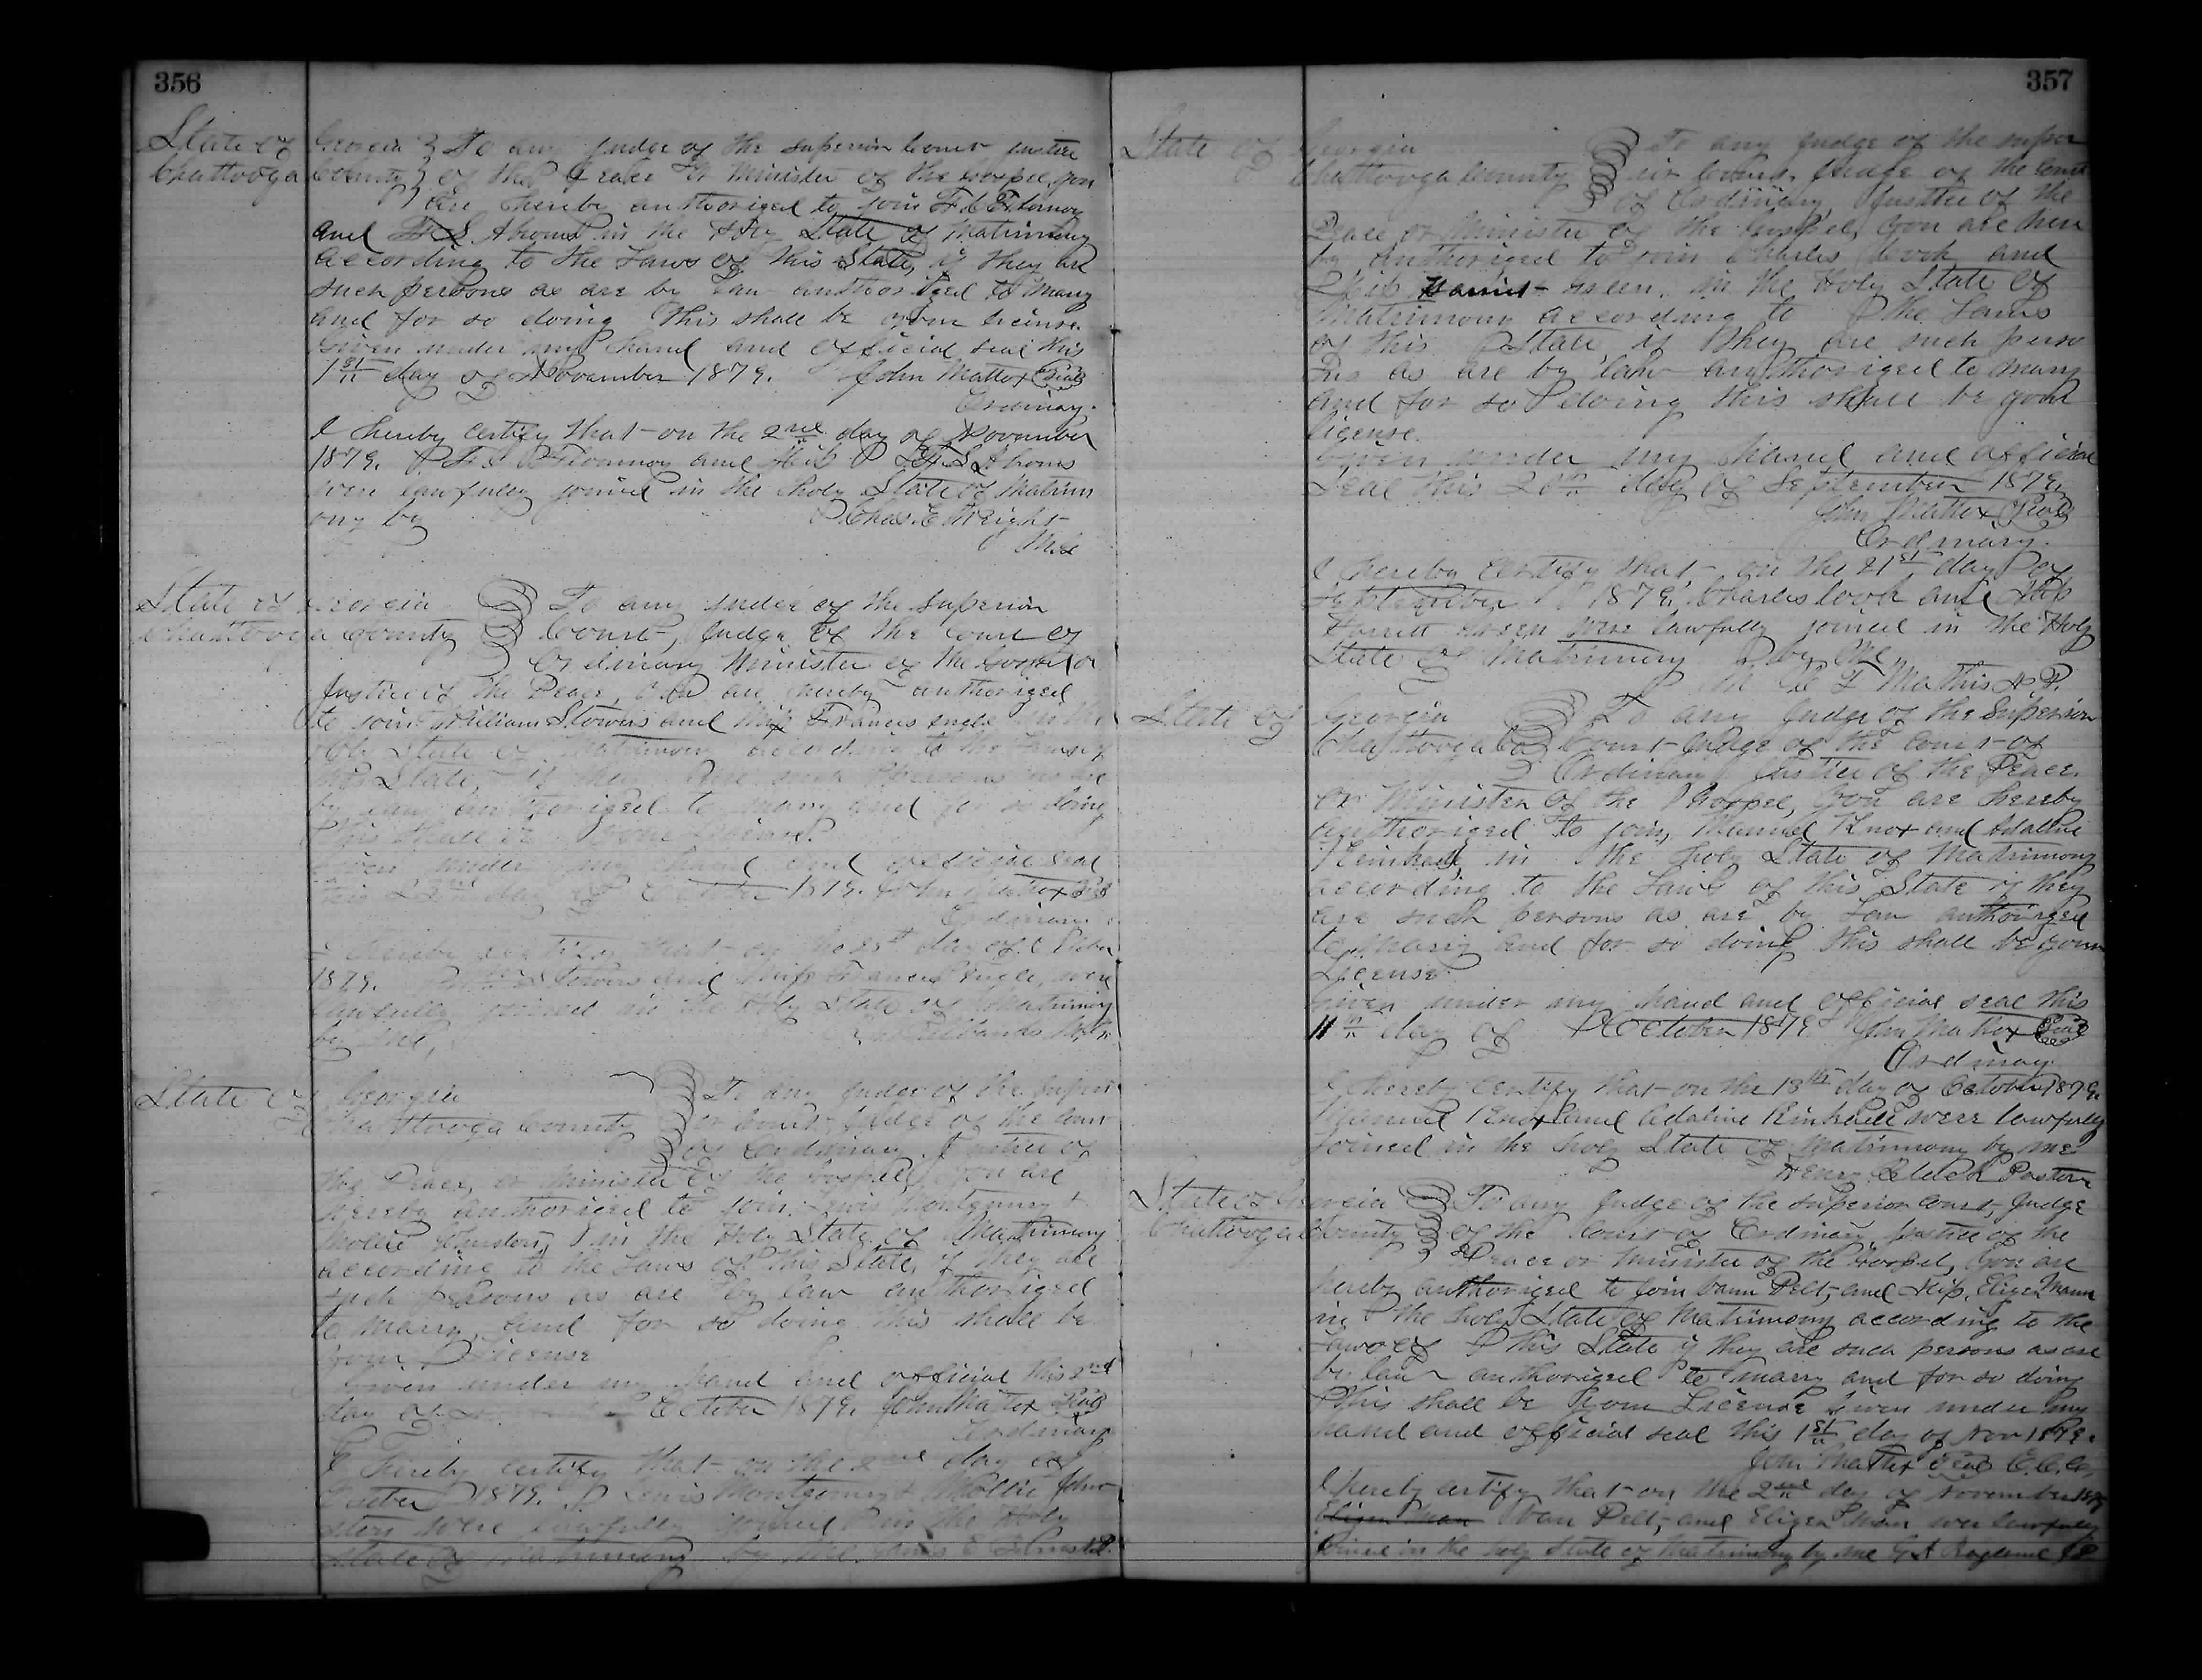 356
State of Georgia } To any Judge of the Superior Court Justice
Chattooga County } of the Peace or Minister of the Gospel, you
are hereby authorized to join
and in the Holy State of Matrimony
according to the Laws of this State, if they are
such persons as are by Law authorized to marry
and for so doing this shall be your license.
Given under my hand and official seal this
1st day of November 1879. John Mattox Seal
Ordinary.
I hereby certify that on the 2nd day of November
1879. and Miss
were lawfully joined in the Holy State of Matrim
ony by Chas. E. Wright
State of Georgia } To any Judge of the Superior
Chattooga County } Court, Judge of the Court of
Ordinary Minister of the Gospel or
Justice of the Peace, You are hereby authorized
to join William Stowers and Miss Frances in the
Holy State of Matrimony according to the Laws of
this State, if they are such persons as are
by Law authorized to marry and for so doing
this shall be your License.
Given under my hand and official seal
this day of October 1879. John Mattox Seal
Ordinary.
I hereby certify that on the 23rd day of October
1879. Stowers and Miss Frances were
lawfully joined in the Holy State of Matrimony
by me,
State of Georgia } To any Judge of the Superi
Chattooga County } or Court Judge of the Court
of Ordinary Justice of
the Peace, or Minister of the Gospel, you are
hereby authorized to join Lewis Montgomery &
Mollie Johnston, in the Holy State of Matrimony
according to the Laws of this State, if they are
such persons as are by law authorized
to marry, and for so doing this shall be
your License
Given under my hand and official this 2nd
day of October 1879. John Mattox Seal
Ordinary
I hereby certify that on the 2nd day of
October 1879. Lewis Montgomery & Mollie John
ston were lawfully joined in the Holy
State of Matrimony by me James
357
State of Georgia } To any Judge of the Super
Chattooga County } ior Court, Judge of the Court
of Ordinary, Justice of the
Peace or Minister of the Gospel, You are here
by authorized to join Charles Cook and
Miss Harriet Green, in the Holy State of
Matrimony according to the Laws
of this State, if they are such perso
ns as are by law authorized to marry
and for so doing this shall be your
license.
Given under my hand and official
Seal this 20th day of September 1879,
John Mattox Seal
Ordinary.
I hereby certify that on the 21st day of
September 1879, Charles Cook and Miss
Harrett Green were lawfully joined in the Holy
State of Matrimony by me
Mathis N. P.
State of Georgia } To any Judge of the Superior
Chattooga Co } Court Judge of the Court of
Ordinary Justice of the Peace.
or Minister of the Gospel, You are hereby
authorized to join, Manuel Knox and Adaline
Kimball, in the holy State of Matrimony
according to the Laws of this State if they
are such persons as are by Law authorized
to marry and for so doing this shall be your
License.
Given under my hand and official seal this
11th day of October 1879 John Mattox Seal
Ordinary
I hereby certify that on the 18th day of October 1879.
Manuel Knox and Adaline Kimball were lawfully
joined in the holy State of Matrimony by me
Henry Pastor
State of Georgia } To any Judge of the Superior Court, Judge
Chattooga County } of the Court of Ordinary, Justice of the
Peace or Minister of the Gospel, You are
hereby authorized to join Vann Pelt, and Miss. Eliza Mann
in the holy State of Matrimony according to the
Laws of this State if they are such persons as are
by law authorized to marry and for so doing
This shall be your License Given under my
hand and official seal this 1st day of Nov 1879.
John Mattox Seal
I hereby certify that on the 2nd day of November 1879
Van Pelt, and Eliza Man were lawfully
joined in the holy State of Matrimony by me